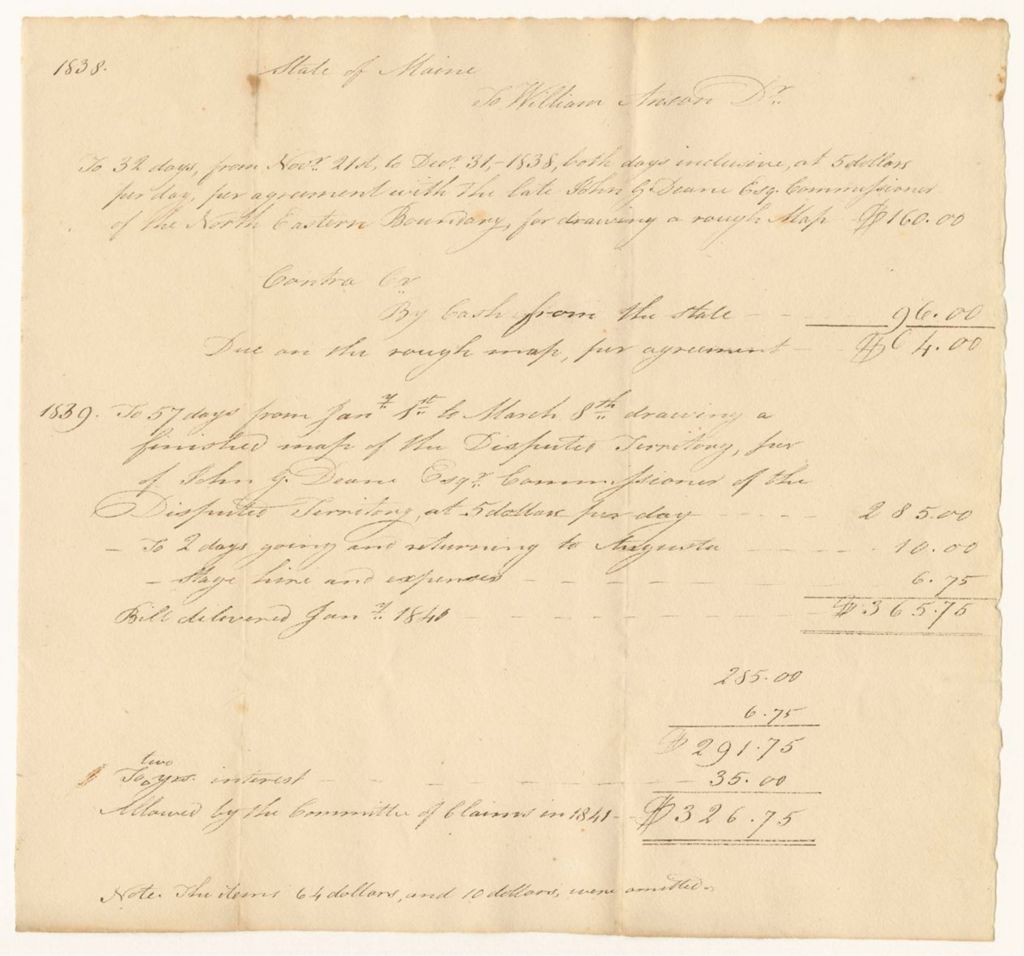 1838. State of Maine
To William Anson Dr.
To 32 days, from Novr. 21st, to Decr. 31,-1838, both days inclusive, at 5 dollars
per day, per agreement with the late John G. Deane Esq. Commissioner
of the North Eastern Boundary, for drawing a rough Map $160.00
Contra Cr
By Cash from the state - - 96.00
Due on the rough map, per agreement - $64.00
1839. To 57 days from Jany. 1st. to March 8th. drawing a
finished map of the Disputed Territory, per
of John G. Deane Esqr. Commissioner of the
Disputed Territory, at 5 dollars per day - - - - 285.00
- To 2 days going and returning to Augusta - - - - 10.00
- Stage hire and expenses - - - - - - 6.75
Bill delivered Jany. 1840 - - - - $365.75
285.00
6.75
$291.75
To two yrs. interest - - - - - 35.00
Allowed by the Committee of Claims in 1841 - $326.75
Note. The items 64 dollars, and 10 dollars, were omitted.